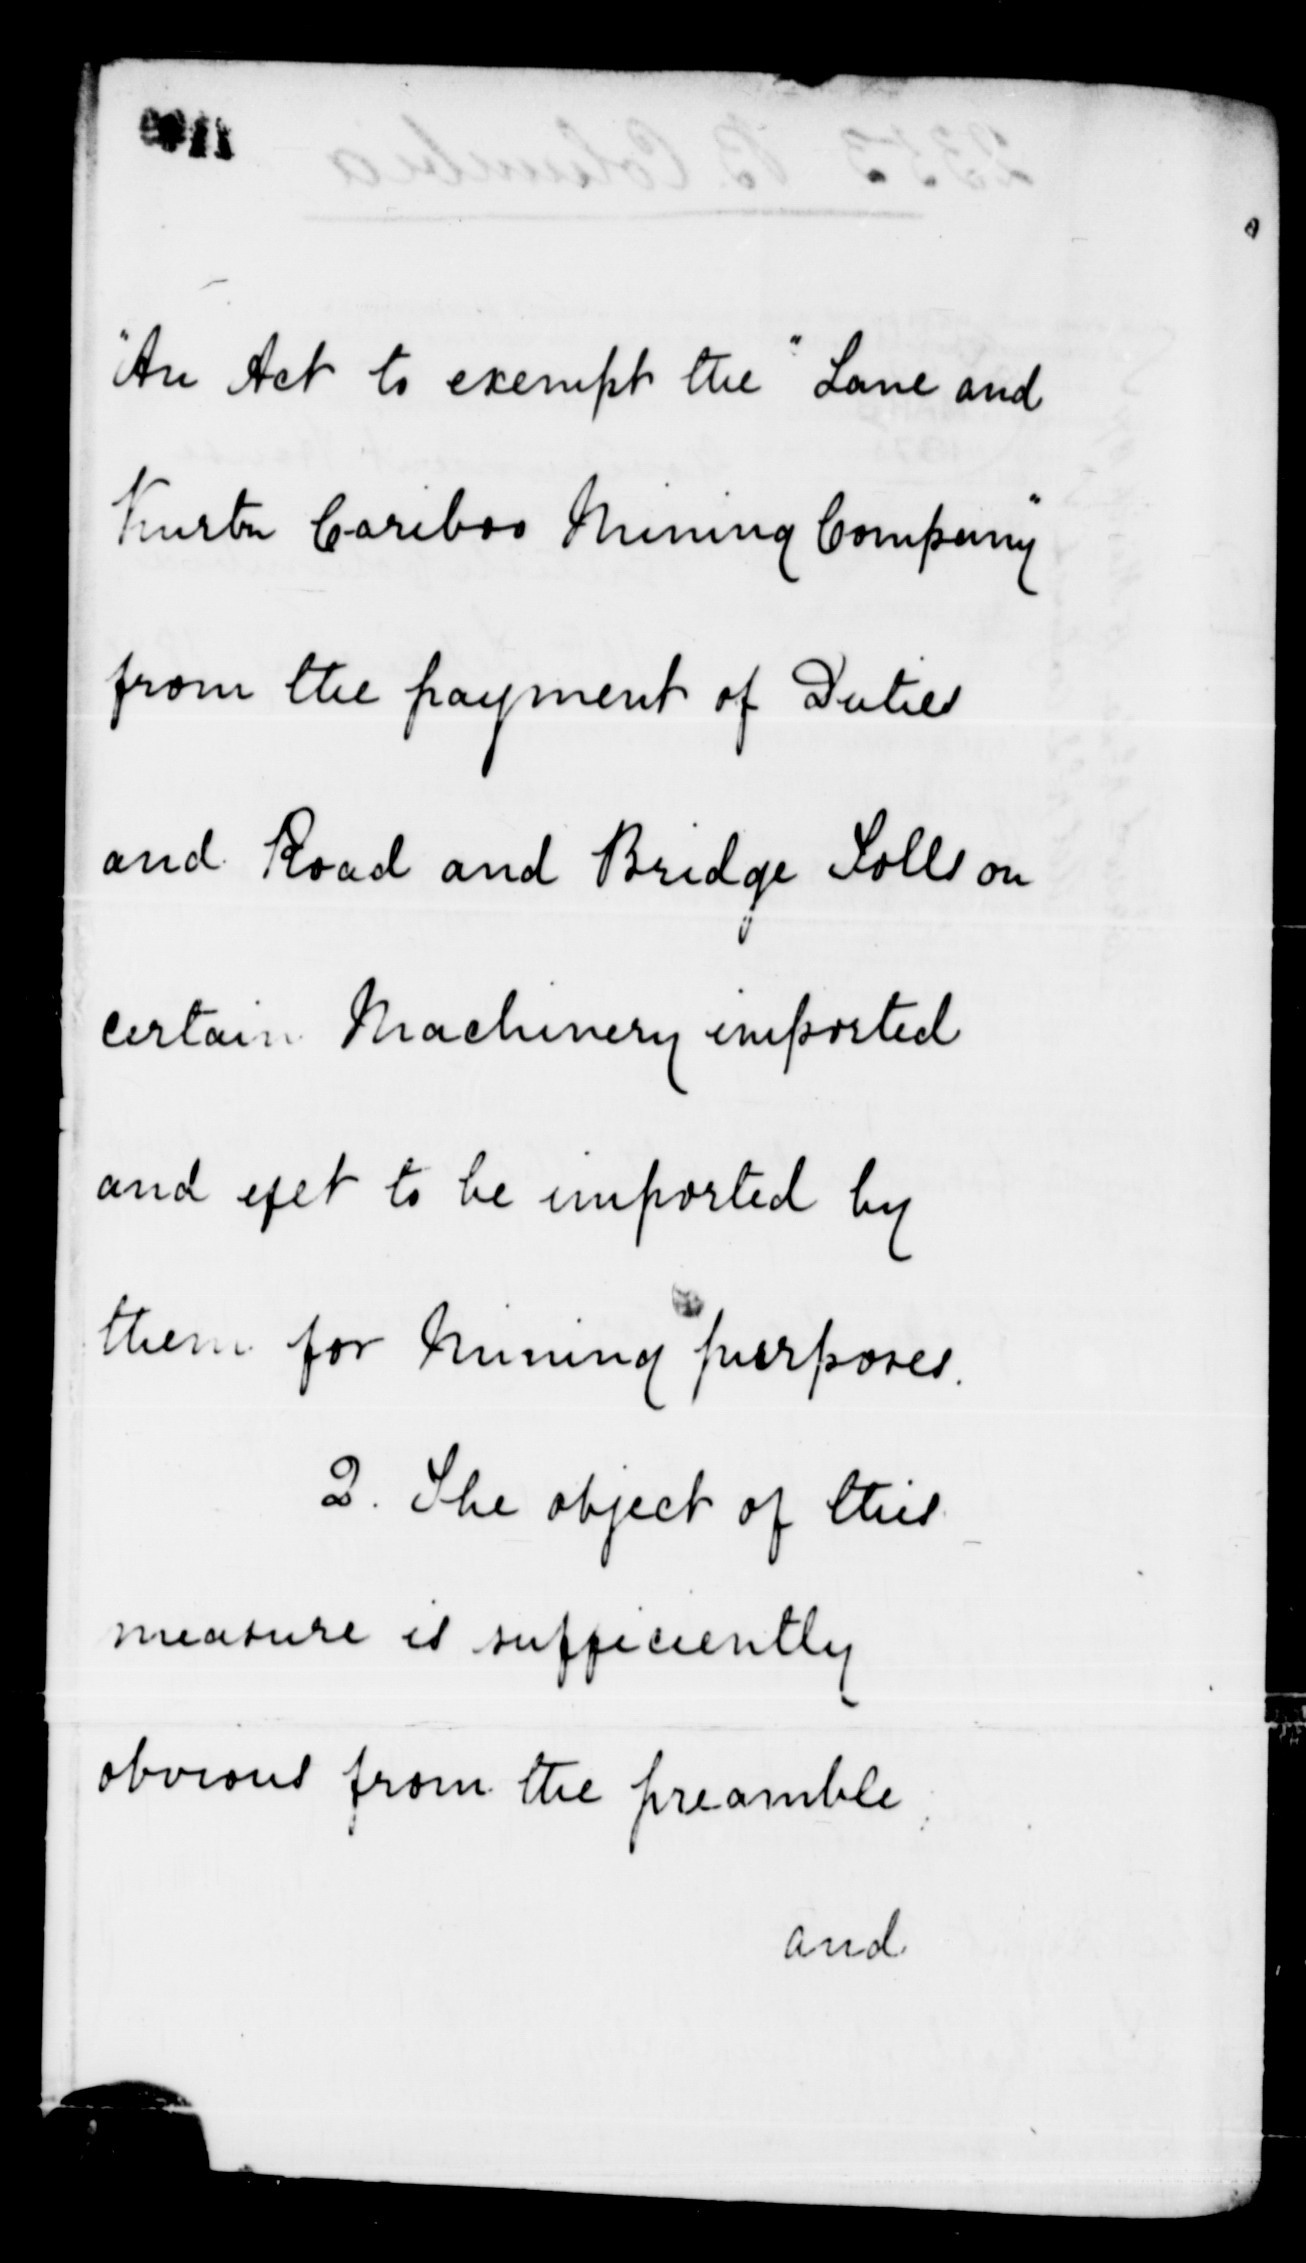 "An Act to exempt the "Lane and
Kurtz Cariboo Mining Company"
from the payment of Duties
and Road and Bridge Tolls on
certain Machinery imported
and yet to be imported by
them for Mining purposes.
2. The object of this
measure is sufficiently
obvious from the preamble;
and